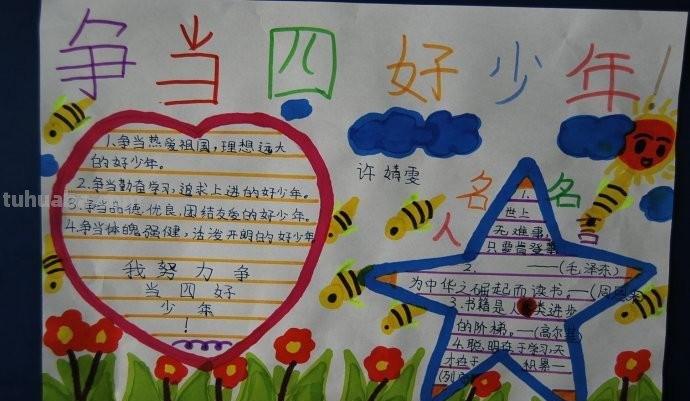 争当四好少年!
许婧雯
tuhua
1.争当热爱祖国,理想远大
的好少年。
2.争当勤奋学习,追求上进的好少年。
争当品德优良,团结友爱的好少年。
4.争当体魄强健,活泼开明的好少年
我努力争
当四好
少年
!
名人名言
1.
世上
无难事,
只要肯登攀
2. ——(毛泽东)
为中华之崛起而读书。—(周
3.书籍是人类进步
的阶梯。—(高尔基)
4.聪明在于学习,天
才在于 积累—
(列